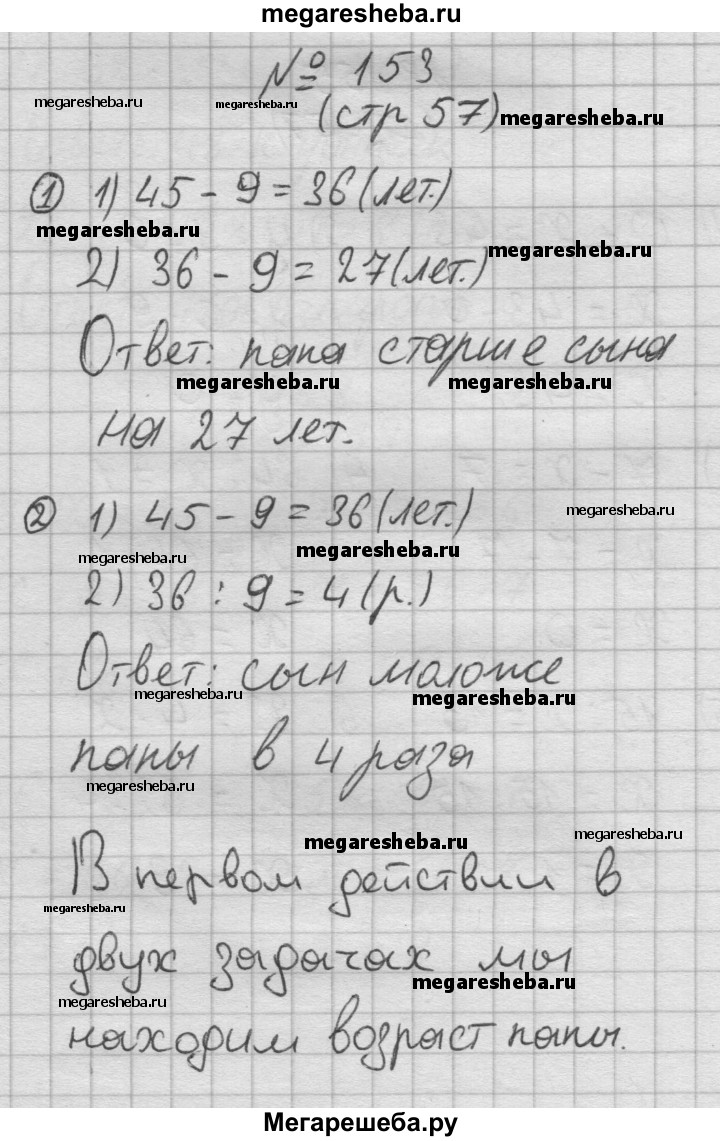 megaresheba.ru
№ 153
megaresheba.ru megaresheba.ru (стр 57) megaresheba.ru
① 1) 45 - 9 = 36 (лет.)
megaresheba.ru megaresheba.ru
2) 36 - 9 = 27 (лет.)
Ответ: папа старше сына
megaresheba.ru megaresheba.ru
на 27 лет.
② 1) 45 - 9 = 36 (лет.) megaresheba.ru
megaresheba.ru megaresheba.ru
2) 36 : 9 = 4 (р.)
Ответ: сын моложе
megaresheba.ru megaresheba.ru
папы в 4 раза
megaresheba.ru
megaresheba.ru megaresheba.ru
В первом действии в
megaresheba.ru
двух задачах мы
megaresheba.ru megaresheba.ru
находим возраст папы.
Мегарешеба.ру